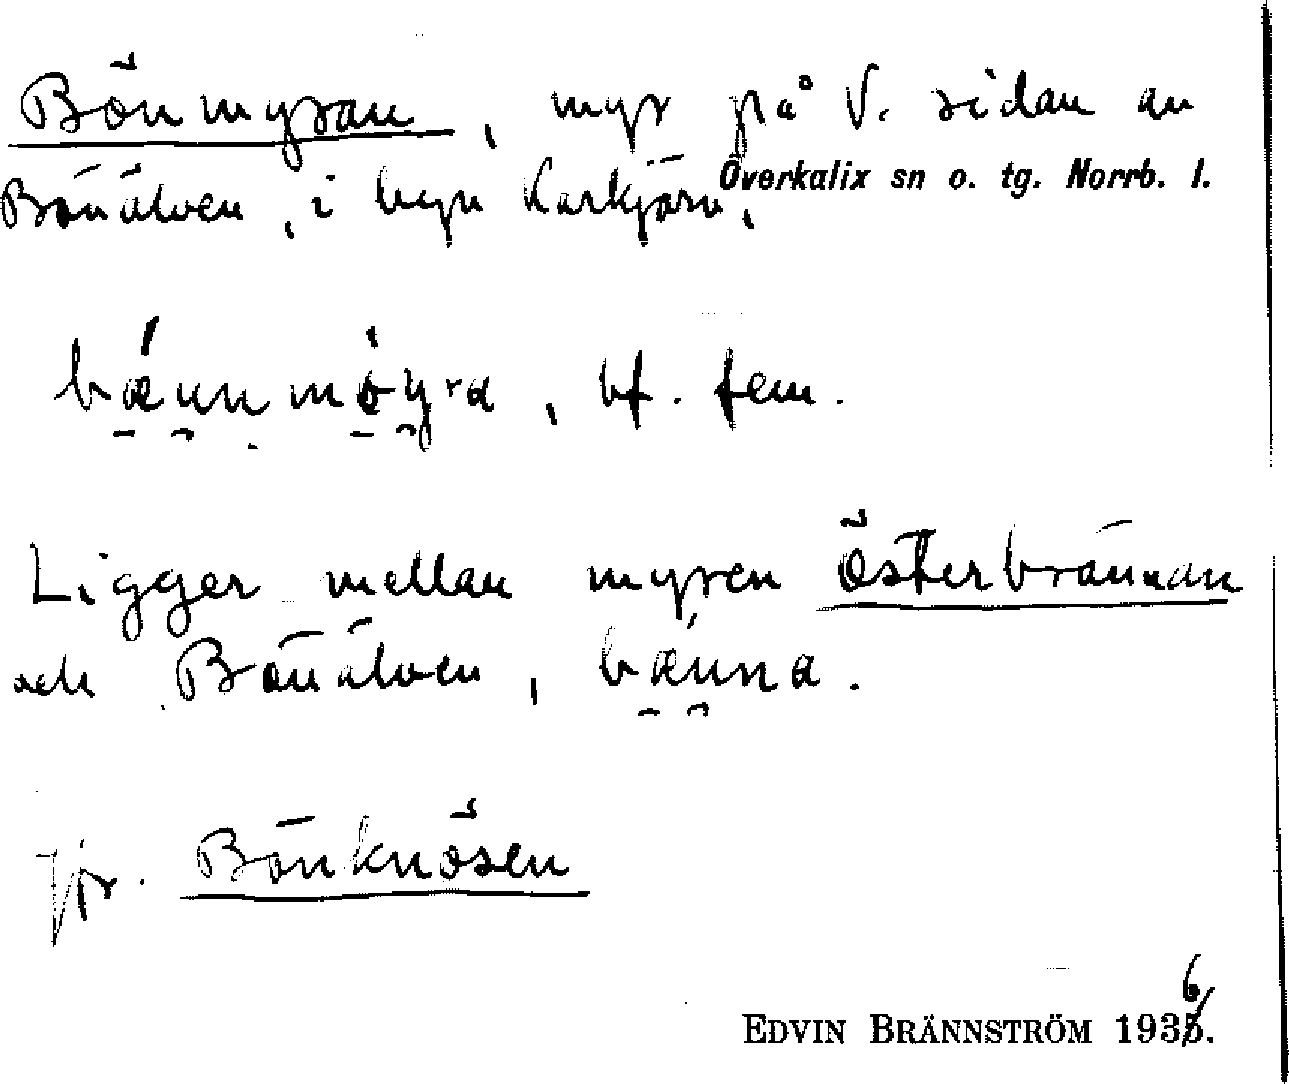 Bönmyran, myr på V. sidan av
Överkalix sn o. tg. Norrb. l.
Bönälven, i byn Karkjärv.
bænnmøyra, bf. fem.
Ligger mellan myren Österbrännan
och Bönälven, bænna.
Jfr. Bönknösen
EDVIN BRÄNNSTRÖM 1936.